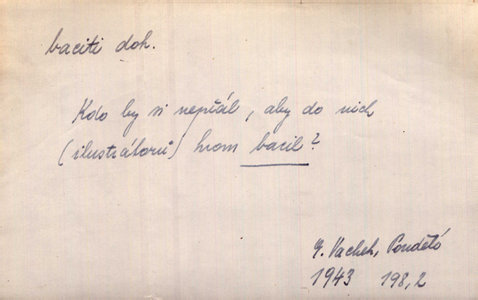 baciti dok.
Kdo by si nepřál, aby do nich
(ilustrátorů) hrom bacil?
E. Vachek, Pondělí
1943 198,2